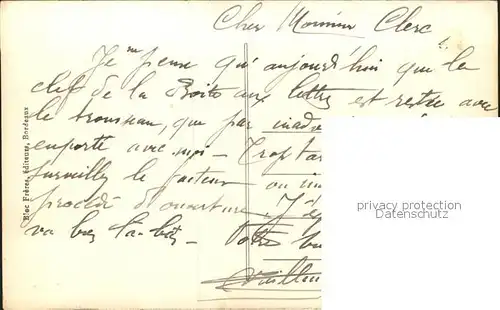 Cher Monsieur Clerc
Je me pense qu'aujourd'hui que la
clef de la Boite aux lettres est restée avec
le trousseau, que par inad
emporté avec moi - Trop tar
surveillez le facteur ou un
procédé d'ouverture. J'
va bien là-bas - Votre
Bloc Frères, Editeurs, Bordeaux
privacy protection